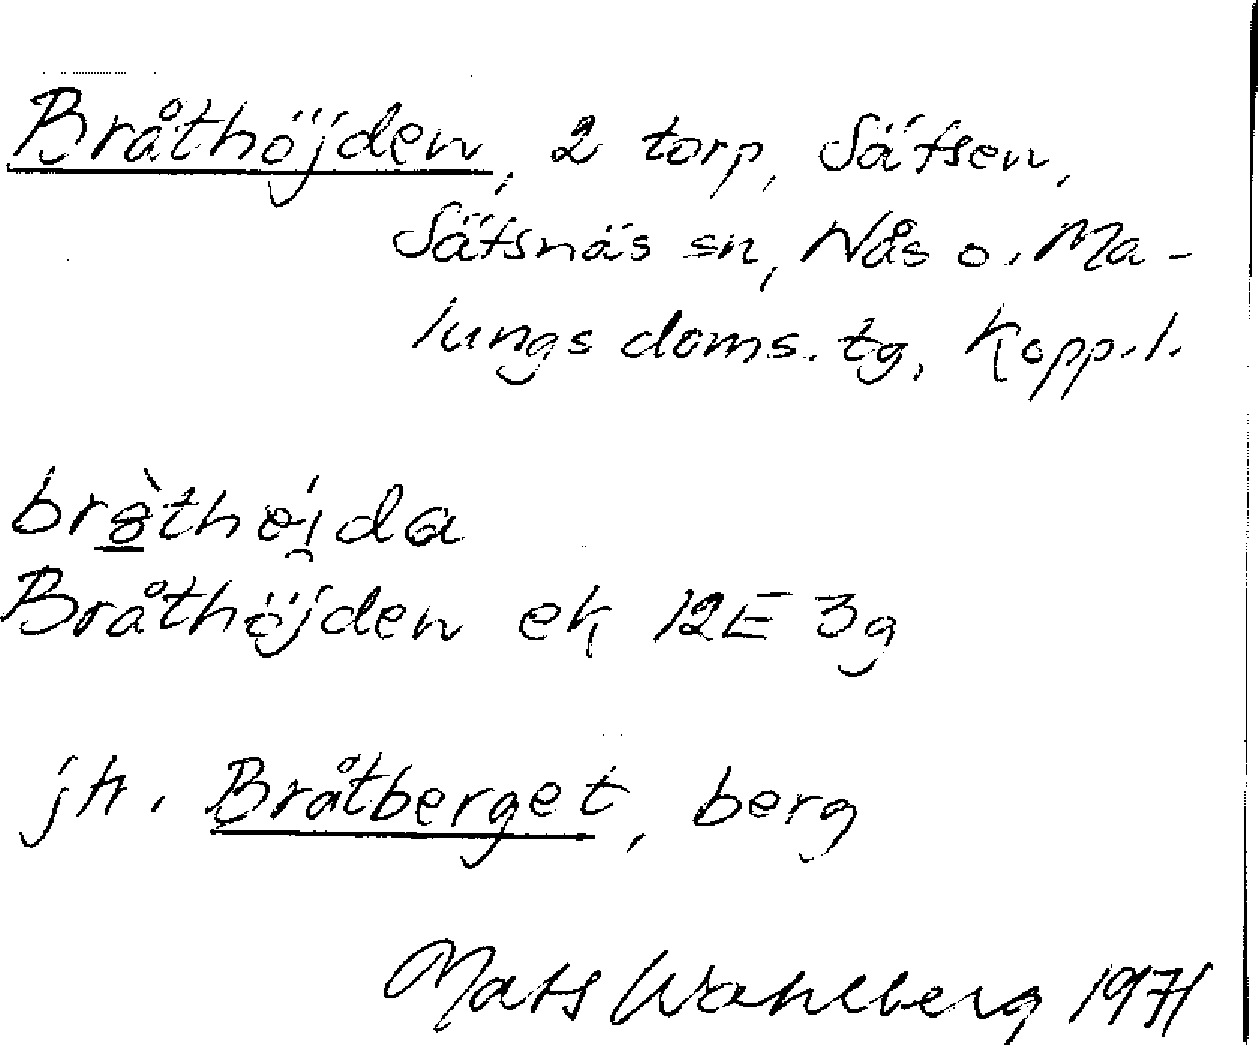 Bråthöjden, 2 torp, Säfsen,
Säfsnäs sn, Nås o. Ma-
lungs doms. tg, Kopp.l.
Bråthöjden ek 12E 3g
jfr. Bråtberget, berg
Mats Wahlberg 1971